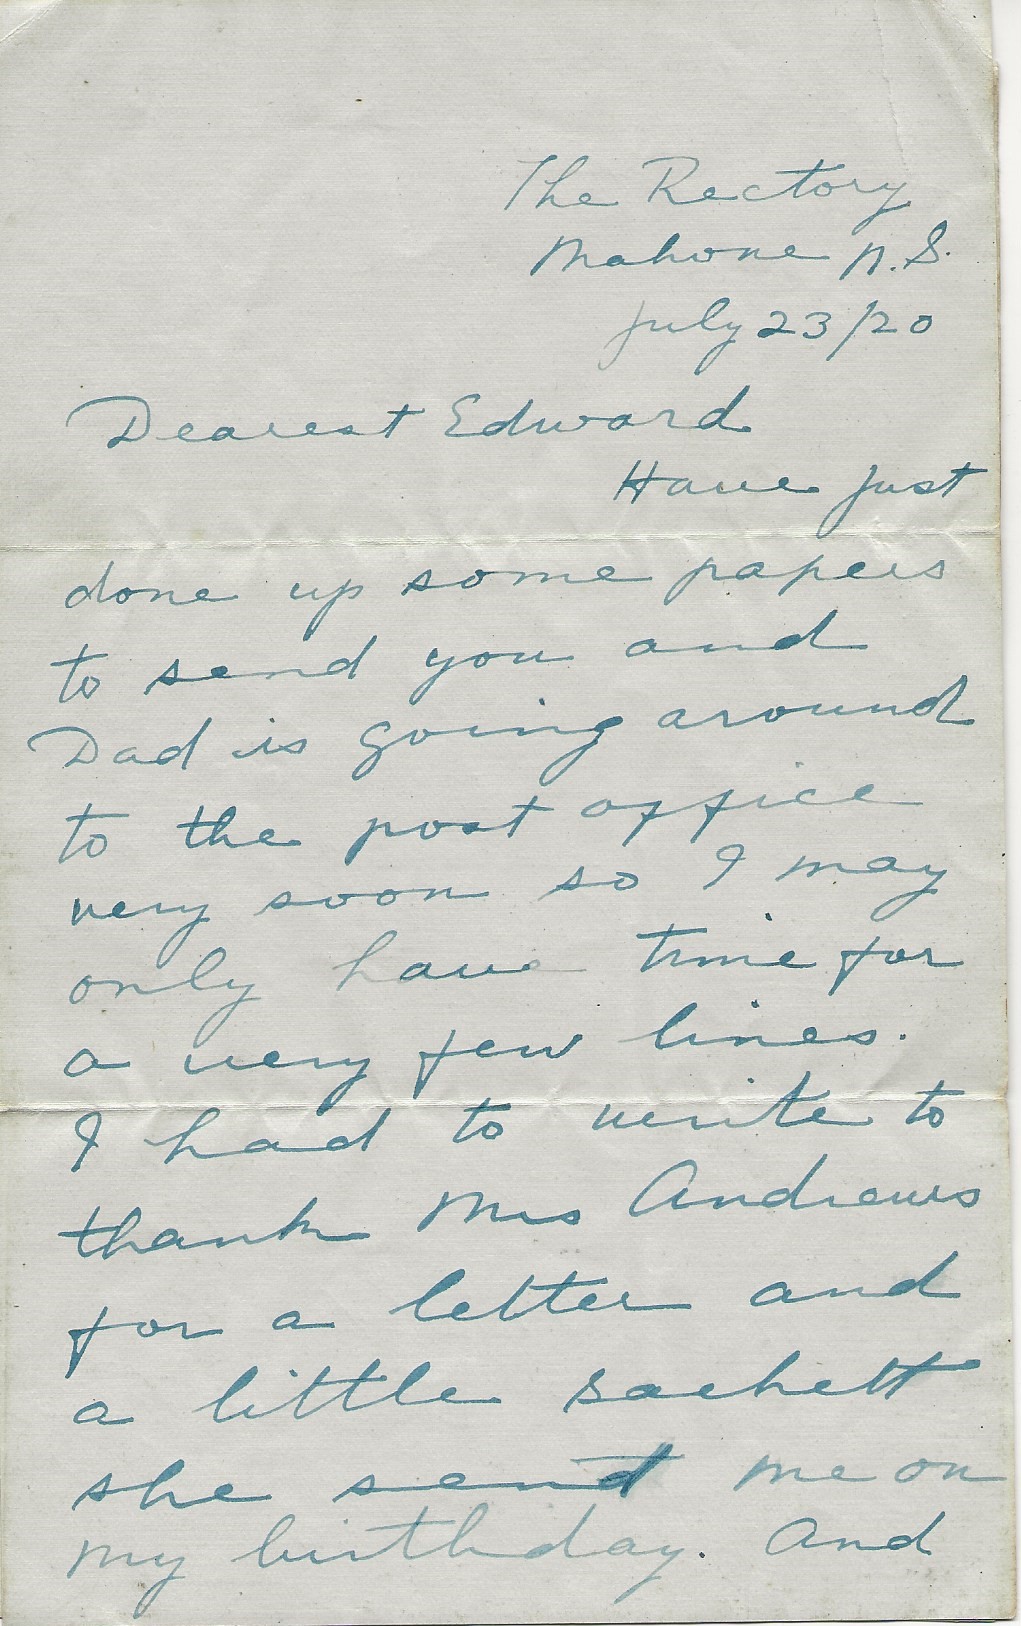 The Rectory
Mahone N.S.
July 23/20
Dearest Edward
Have just
done up some papers
to send you and
Dad is going around
to the post office
very soon so I may
only have time for
a very few lines.
I had to write to
thank Mrs Andrews
for a letter and
a little sachett
she sent me on
my birthday. And